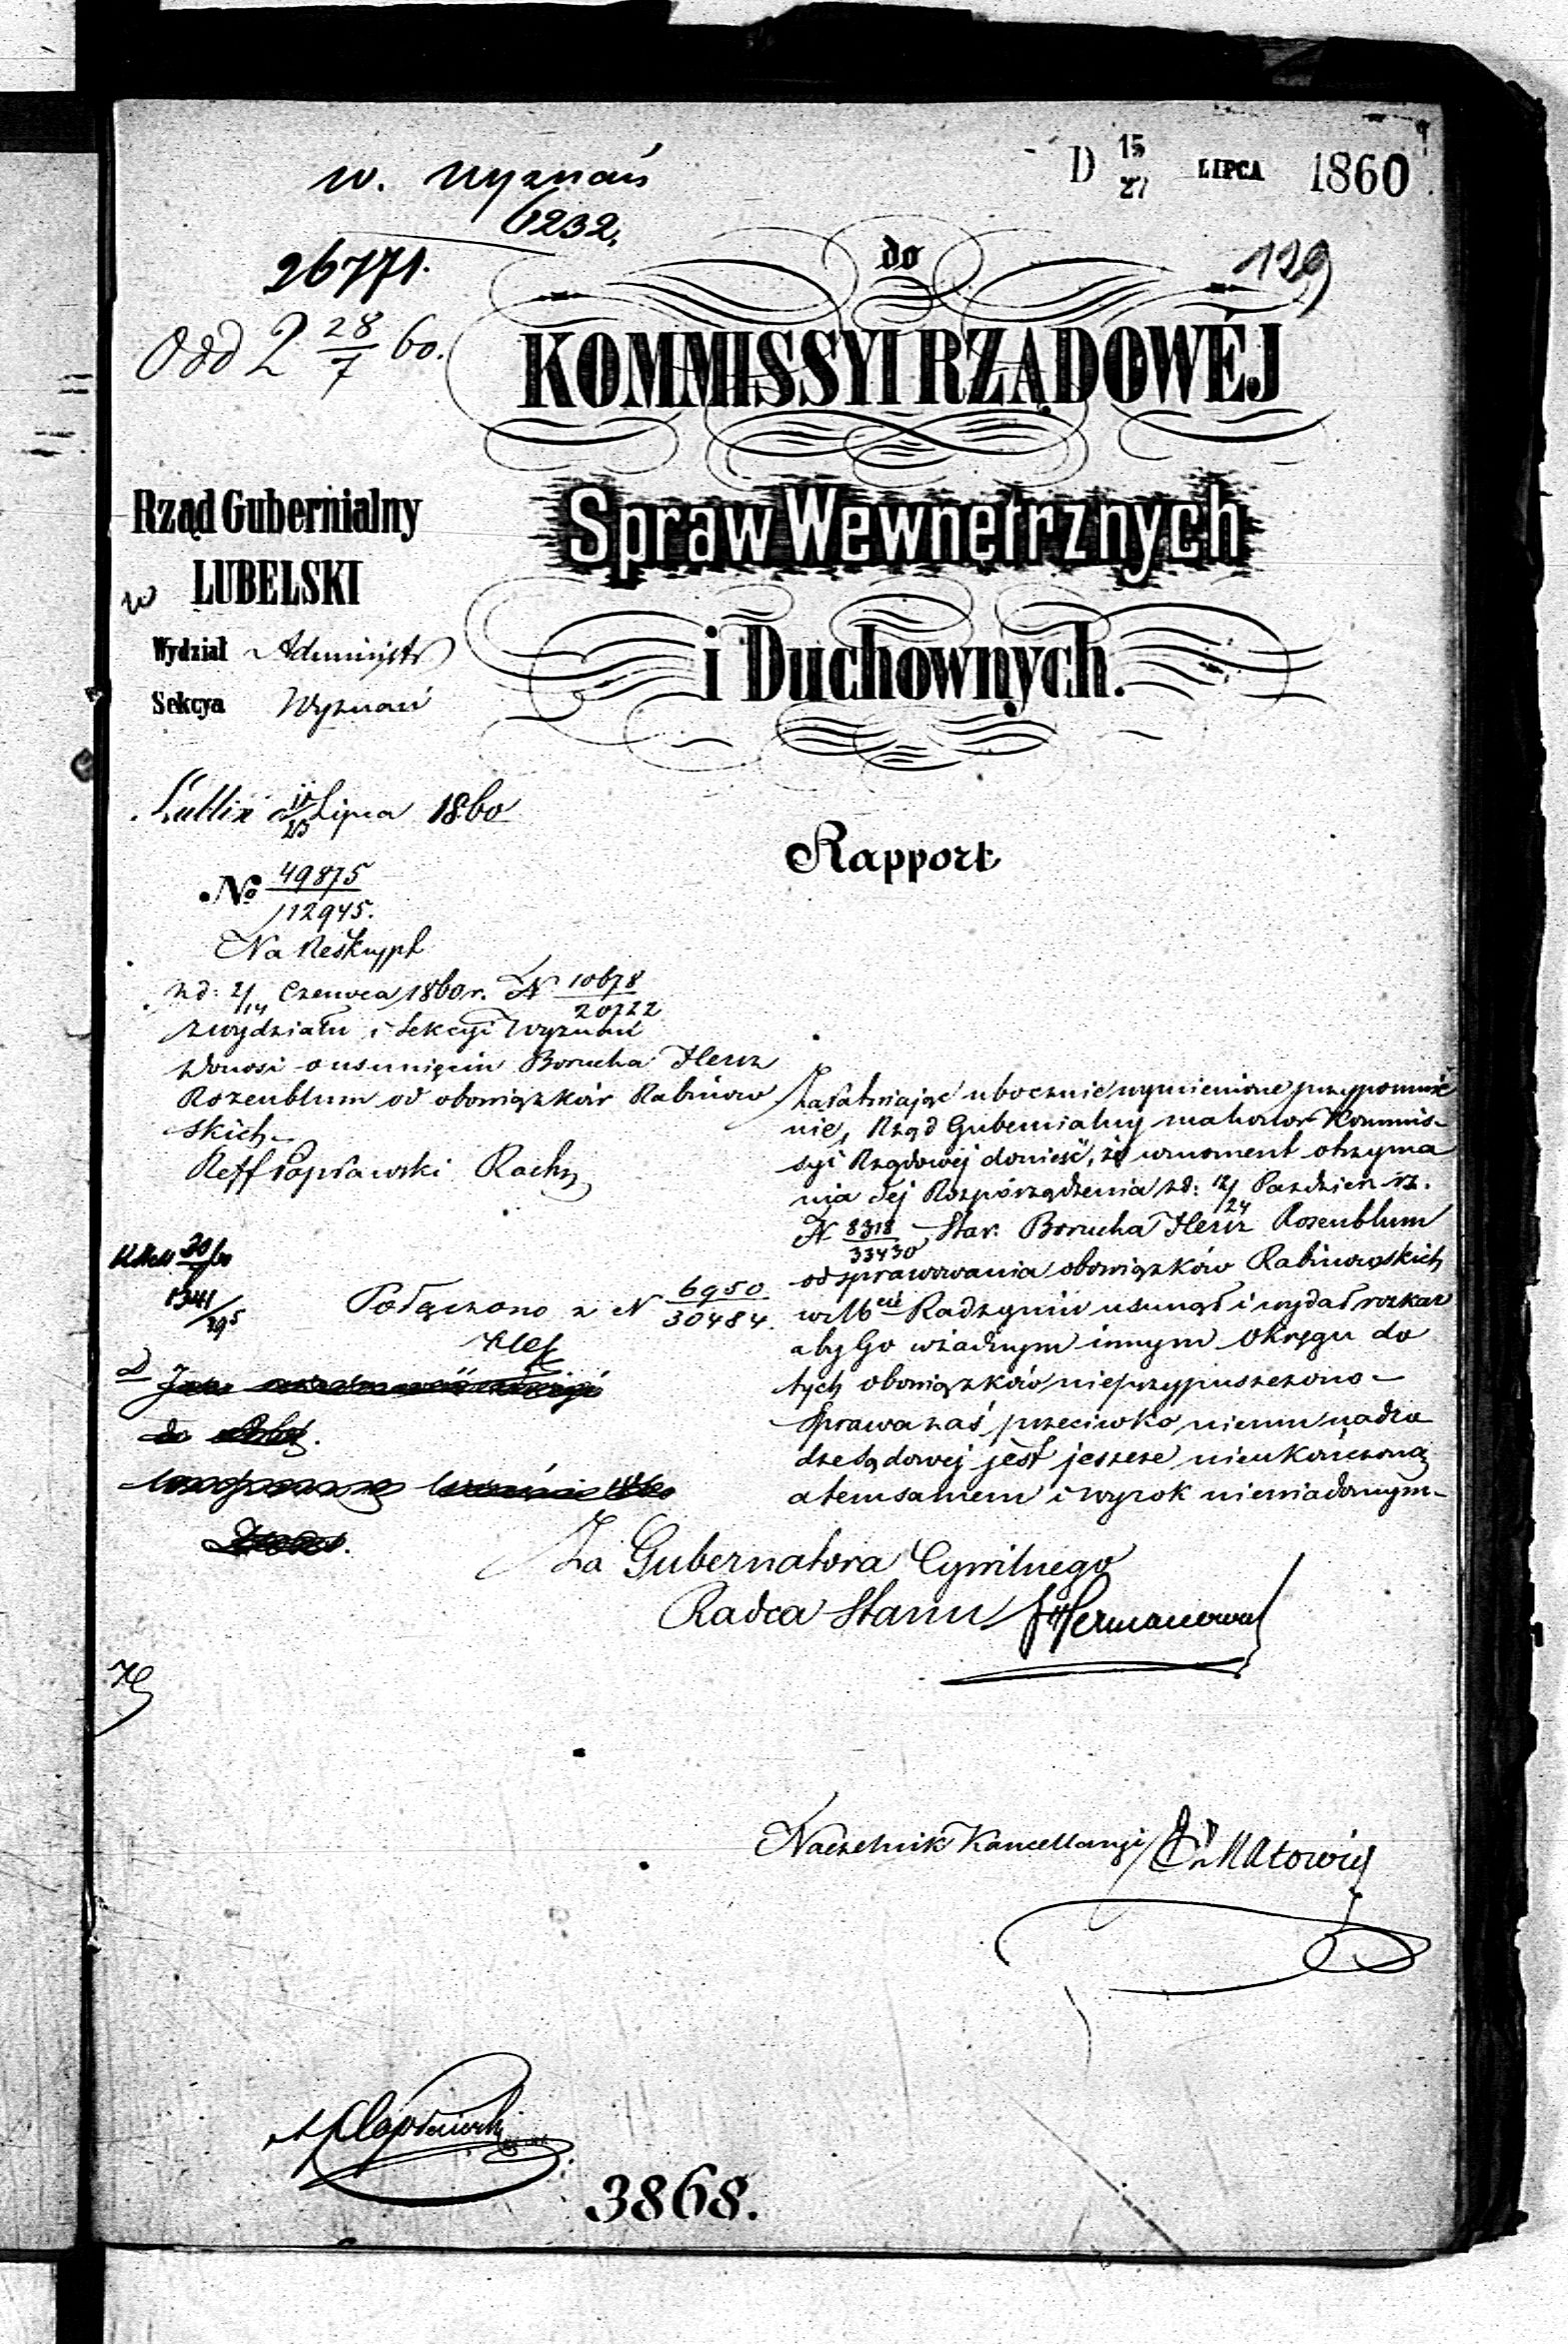 D 15/27 LIPCA 1860
w. Wyznań
6232.
129
26771.
Odd 2 28/7 60.
do
KOMMISSYI RZĄDOWÉJ
Spraw Wewnętrznych
i Duchownych.
Rząd Gubernialny
LUBELSKI
w
Wydział Administr
Sekcya Wyznań
Lublin d Lipca 1860
Rapport
№ 49875/112945.
Na Reskrypt
z d: 2/14 Czerwca 1860 r. N 10678/20722
z wydziału i Sekcyi Wyznań
Donosi o usunięciu Borucha Hersz
Rozenblum od obowiązków Rabinow
skich
Reff Popławski
Załatwiając ubocznie wymienione przypomnie
nie, Rząd Gubernialny ma honor Kommis-
syi Rządowej donieść, że w moment otrzyma
nia Jej Rozporządzenia z d: 12/24 Paździer
N 8318/33430 Star. Borucha Hersz Rosenblum
od sprawowania obowiązków Rabinowskich
w Radzyniu usunął i wydał rozkaz
aby Go w żadnym innym Okręgu do
tych obowiązków nieprzypuszczono –
Sprawa zaś przeciwko niemu na dro
dze Sądowej jest jeszcze nieukończoną
a tem samem i wyrok niewiadomym –
30/7 60
1341/295
Połączono z N 6950/30484.
Za Gubernatora Cywilnego
Radca Stanu
Naczelnik Kancellaryi
3868.